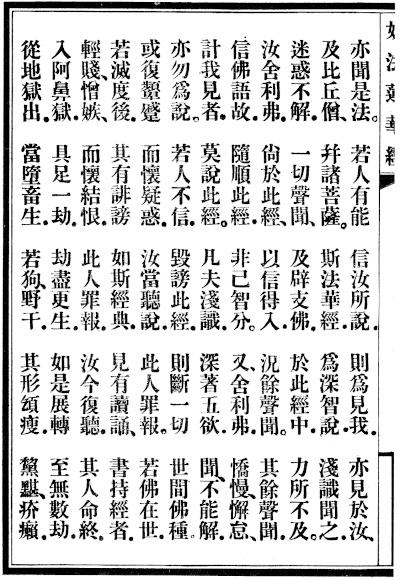 妙法蓮華經
亦聞是法。若人有能信汝所說則爲見我。亦見於汝、
及比丘僧、幷諸菩薩。斯法華經、爲深智說、淺識聞之、
迷惑不解。一切聲聞、及辟支佛、於此經中、力所不及。
汝舍利弗、尙於此經、以信得入、況餘聲聞。其餘聲聞、
信佛語故、隨順此經、非己智分。又舍利弗、憍慢懈怠、
計我見者、莫說此經。凡夫淺識、深著五欲、聞不能解、
亦勿爲說。若人不信、毀謗此經、則斷一切、世間佛種。
或復顰蹙、而懷疑惑、汝當聽說、此人罪報。若佛在世、
若滅度後、其有誹謗、如斯經典、見有讀誦、書持經者、
輕賤憎嫉、而懷結恨、此人罪報、汝今復聽。其人命終、
入阿鼻獄、具足一劫、劫盡更生、如是展轉、至無數劫。
從地獄出、當墮畜生、若狗野干、其形頌瘦、黧黮疥癩、